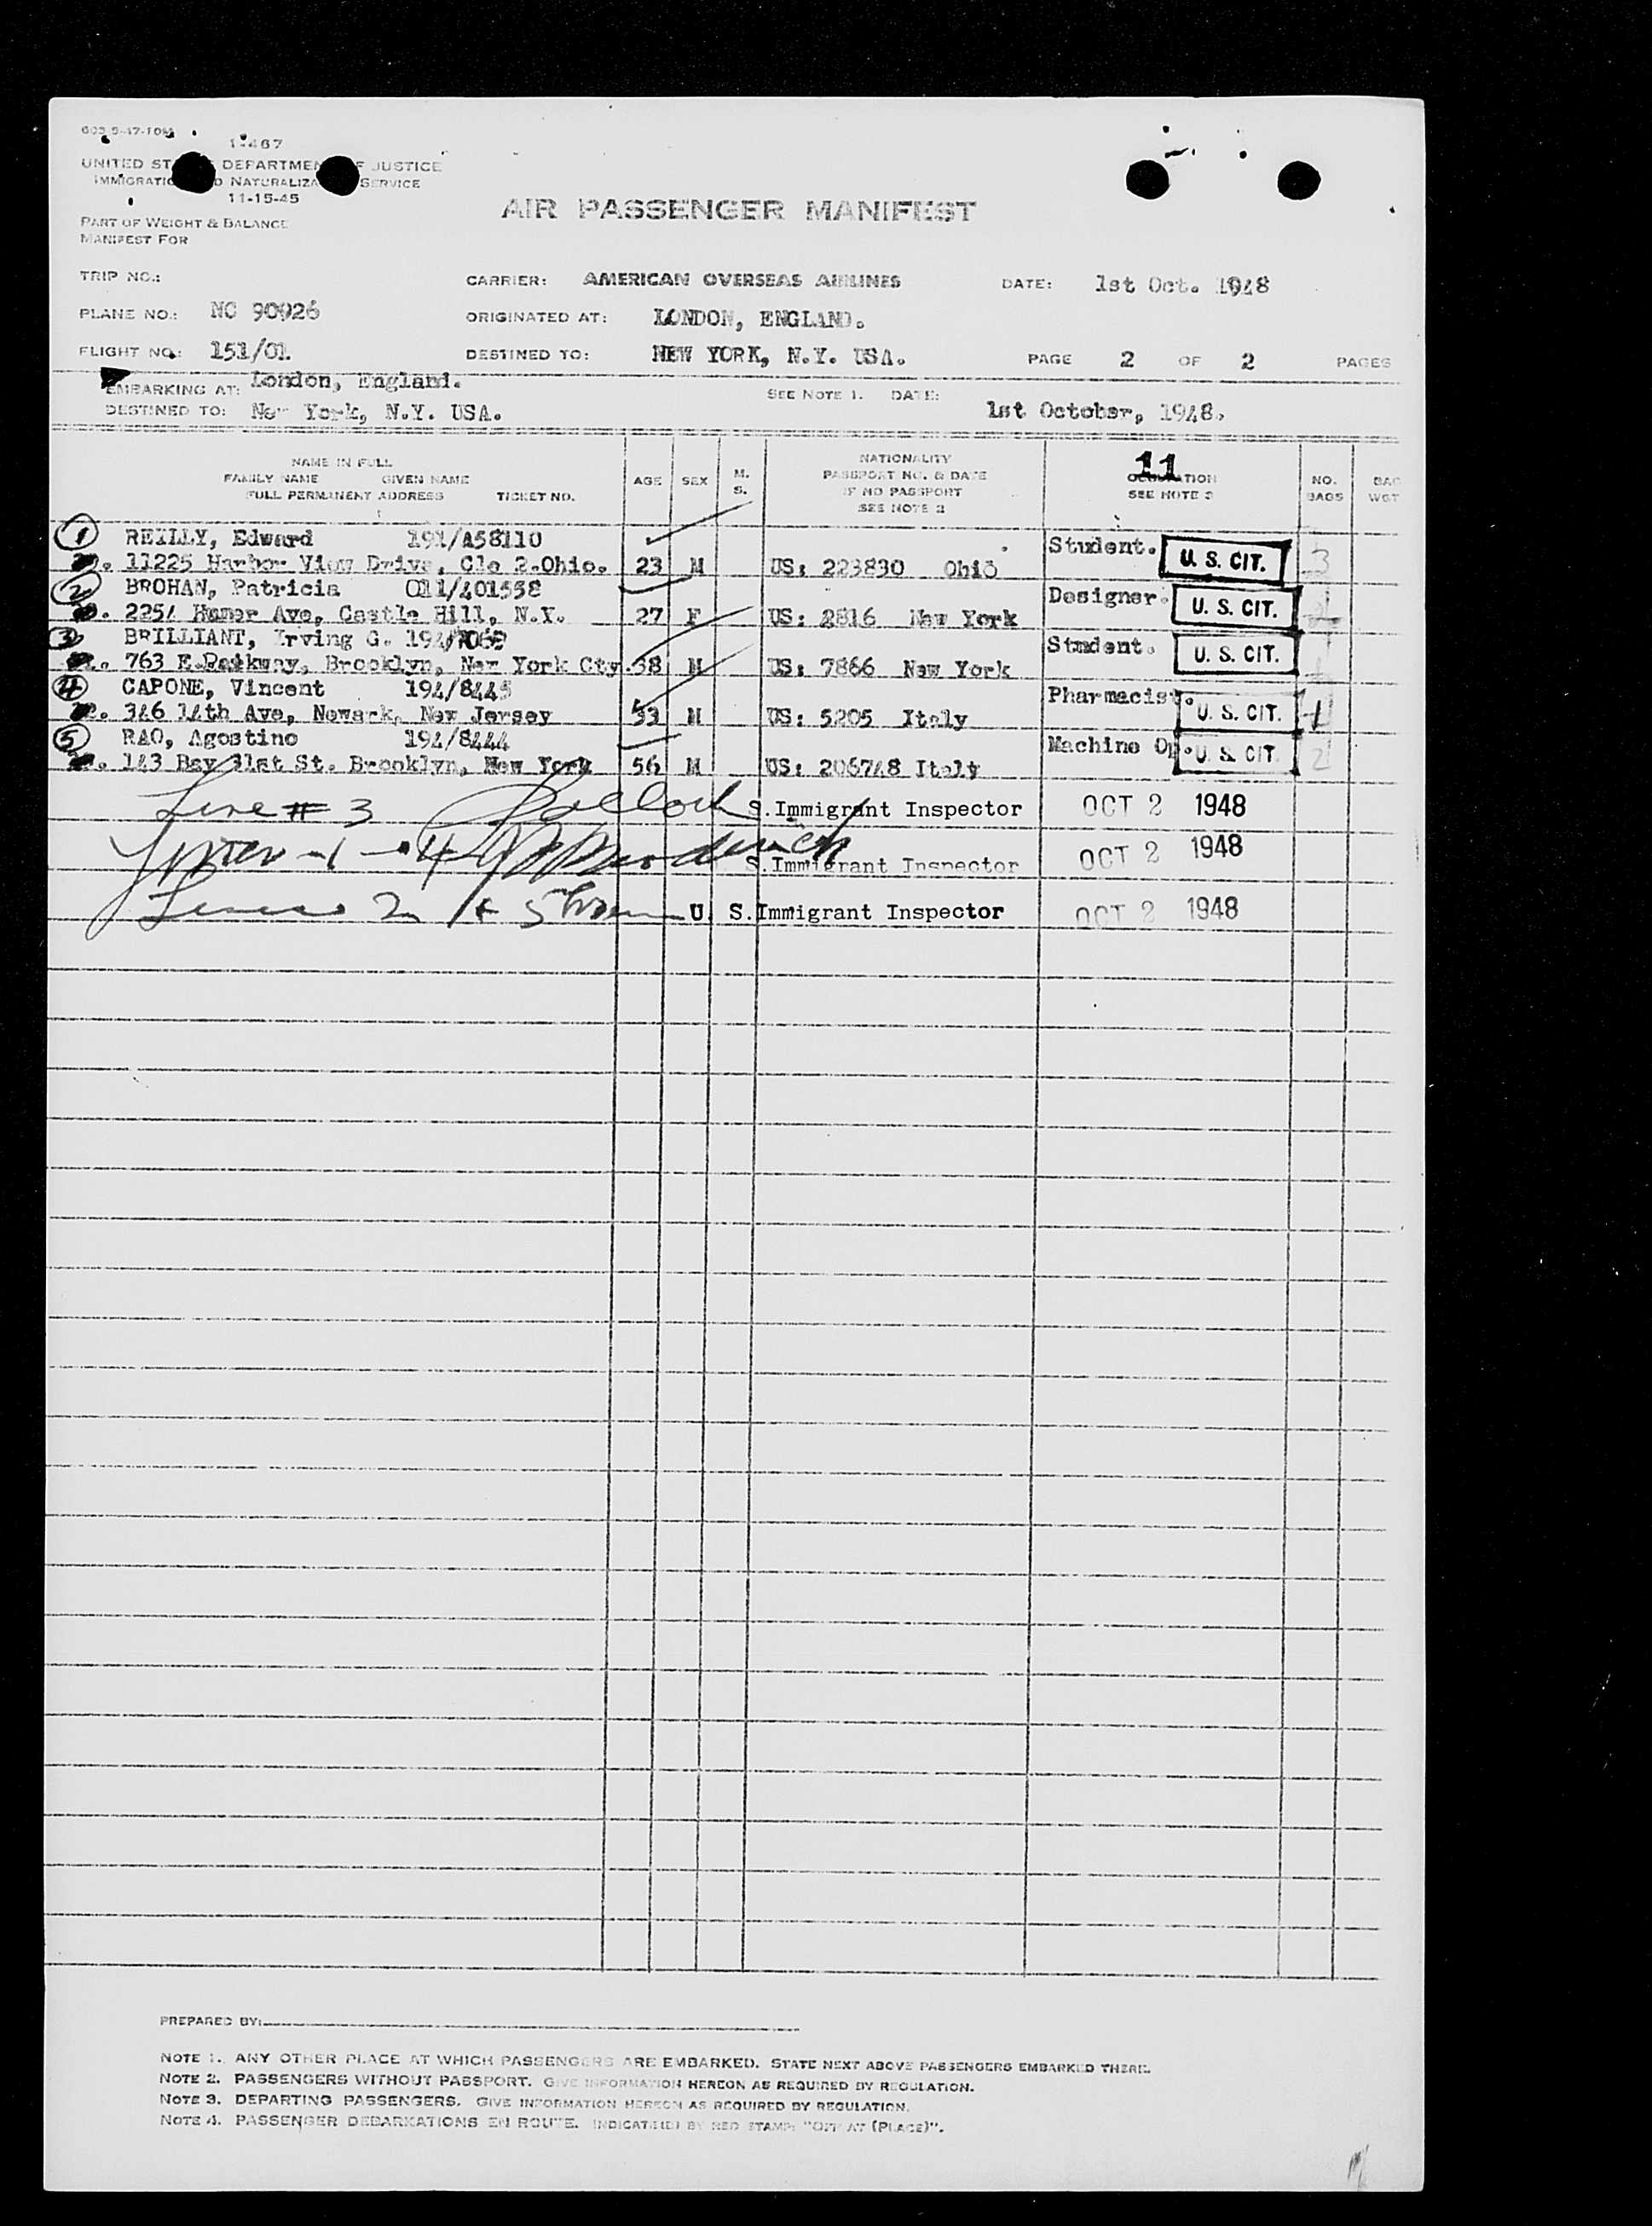 1-467
UNITED ST DEPARTMEN F JUSTICE
IMMIGRATIO D NATURALIZA SERVICE
11-15-45
PART OF WEIGHT & BALANCE
MANIFEST FOR
AIR PASSENGER MANIFEST
TRIP NO.:
CARRIER: AMERICAN OVERSEAS AIRLINES
DATE: 1st Oct. 1948
PLANE NO.: NC 90926
ORIGINATED AT: LONDON, ENGLAND.
FLIGHT NO.: 151/01.
DESTINED TO: NEW YORK, N.Y. USA.
PAGE 2 OF 2 PAGES
EMBARKING AT: London, England.
SEE NOTE 1. DATE:
DESTINED TO: New York, N.Y. USA.
1st October, 1948.
NAME IN FULL
FAMILY NAME GIVEN NAME
FULL PERMANENT ADDRESS TICKET NO.
AGE
SEX
M.
S.
NATIONALITY
PASSPORT NO. & DATE
IF NO PASSPORT
SEE NOTE 2
11
OCCUPATION
SEE NOTE 3
NO.
BAGS
BAG
WGT
1 REILLY, Edward 191/A58110 Student. U. S. CIT. 3
11225 Harbor View Drive, Cle 2.Ohio. 23 M US: 223830 Ohio
2 BROHAN, Patricia 011/401558 Designer. U. S. CIT.
2254 Homer Ave, Castle Hill, N.Y. 27 F US: 2816 New York
3 BRILLIANT, Irving G. Student. U. S. CIT.
763 E.Parkway, Brooklyn, New York Cty. 38 M US: 7866 New York
4 CAPONE, Vincent 194/8445 Pharmacist. U. S. CIT. 1
346 14th Ave, Newark, New Jersey 53 M US: 5205 Italy
5 RAO, Agostino 194/8444 Machine Op. U. S. CIT. 2
143 Bay 31st St. Brooklyn, New York 56 M US: 206748 Italy
Line # 3 S.Immigrant Inspector OCT 2 1948
1 - 4 S.Immigrant Inspector OCT 2 1948
Lines 2 & 5 U. S.Immigrant Inspector OCT 2 1948
PREPARED BY:
NOTE 1. ANY OTHER PLACE AT WHICH PASSENGERS ARE EMBARKED. STATE NEXT ABOVE PASSENGERS EMBARKED THERE.
NOTE 2. PASSENGERS WITHOUT PASSPORT. GIVE INFORMATION HEREON AS REQUIRED BY REGULATION.
NOTE 3. DEPARTING PASSENGERS. GIVE INFORMATION HEREON AS REQUIRED BY REGULATION.
NOTE 4. PASSENGER DEBARKATIONS EN ROUTE. INDICATE(D) BY RED STAMP: "OFF AT (PLACE)".